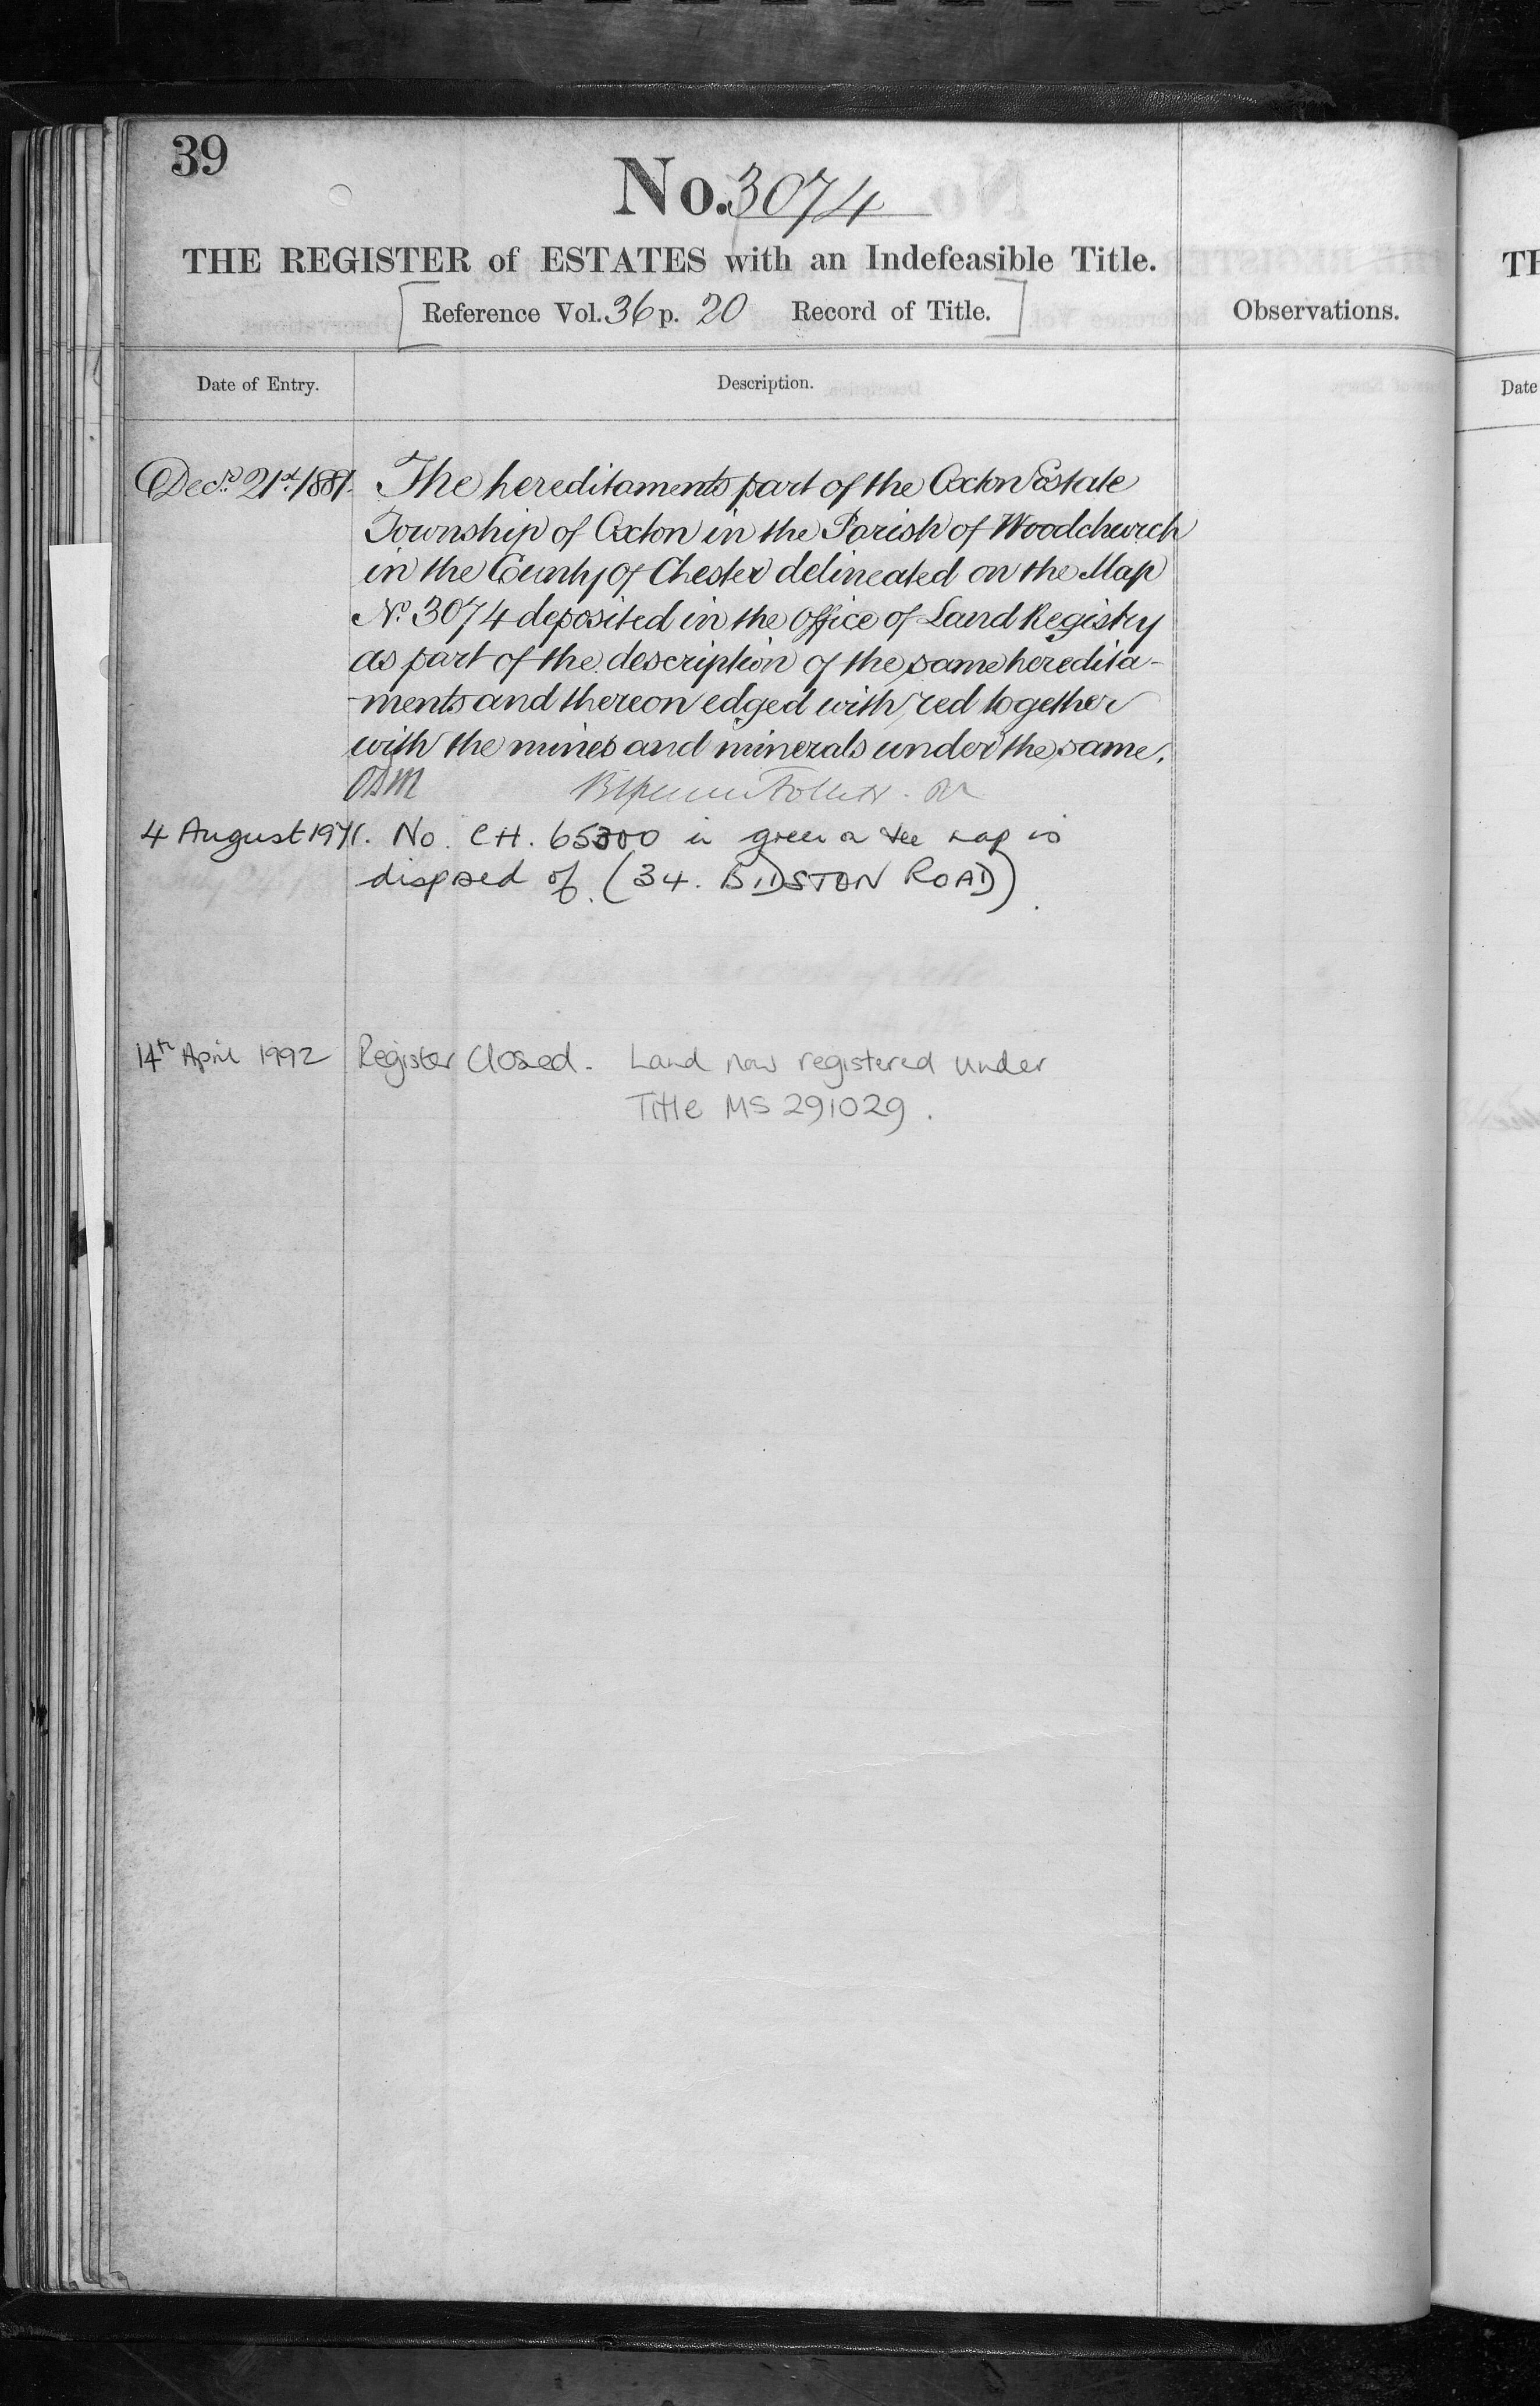 39
No. 3074
THE REGISTER of ESTATES with an Indefeasible Title.
Reference Vol. 36 p. 20 Record of Title.
Observations.
Date of Entry.
Description.
Decr. 21st. 1881. The hereditaments part of the Oxton Estate
Township of Oxton in the Parish of Woodchurch
in the County of Chester delineated on the Map
No. 3074 deposited in the Office of Land Registry
as part of the description of the same heredita-
-ments and thereon edged with red together
with the mines and minerals under the same.
4 August 1971. No. CH. 65300 in green on the map is
disposed of. (34. BIDSTON ROAD).
14th April 1992 Register Closed. Land now registered under
Title MS 291029.
Date